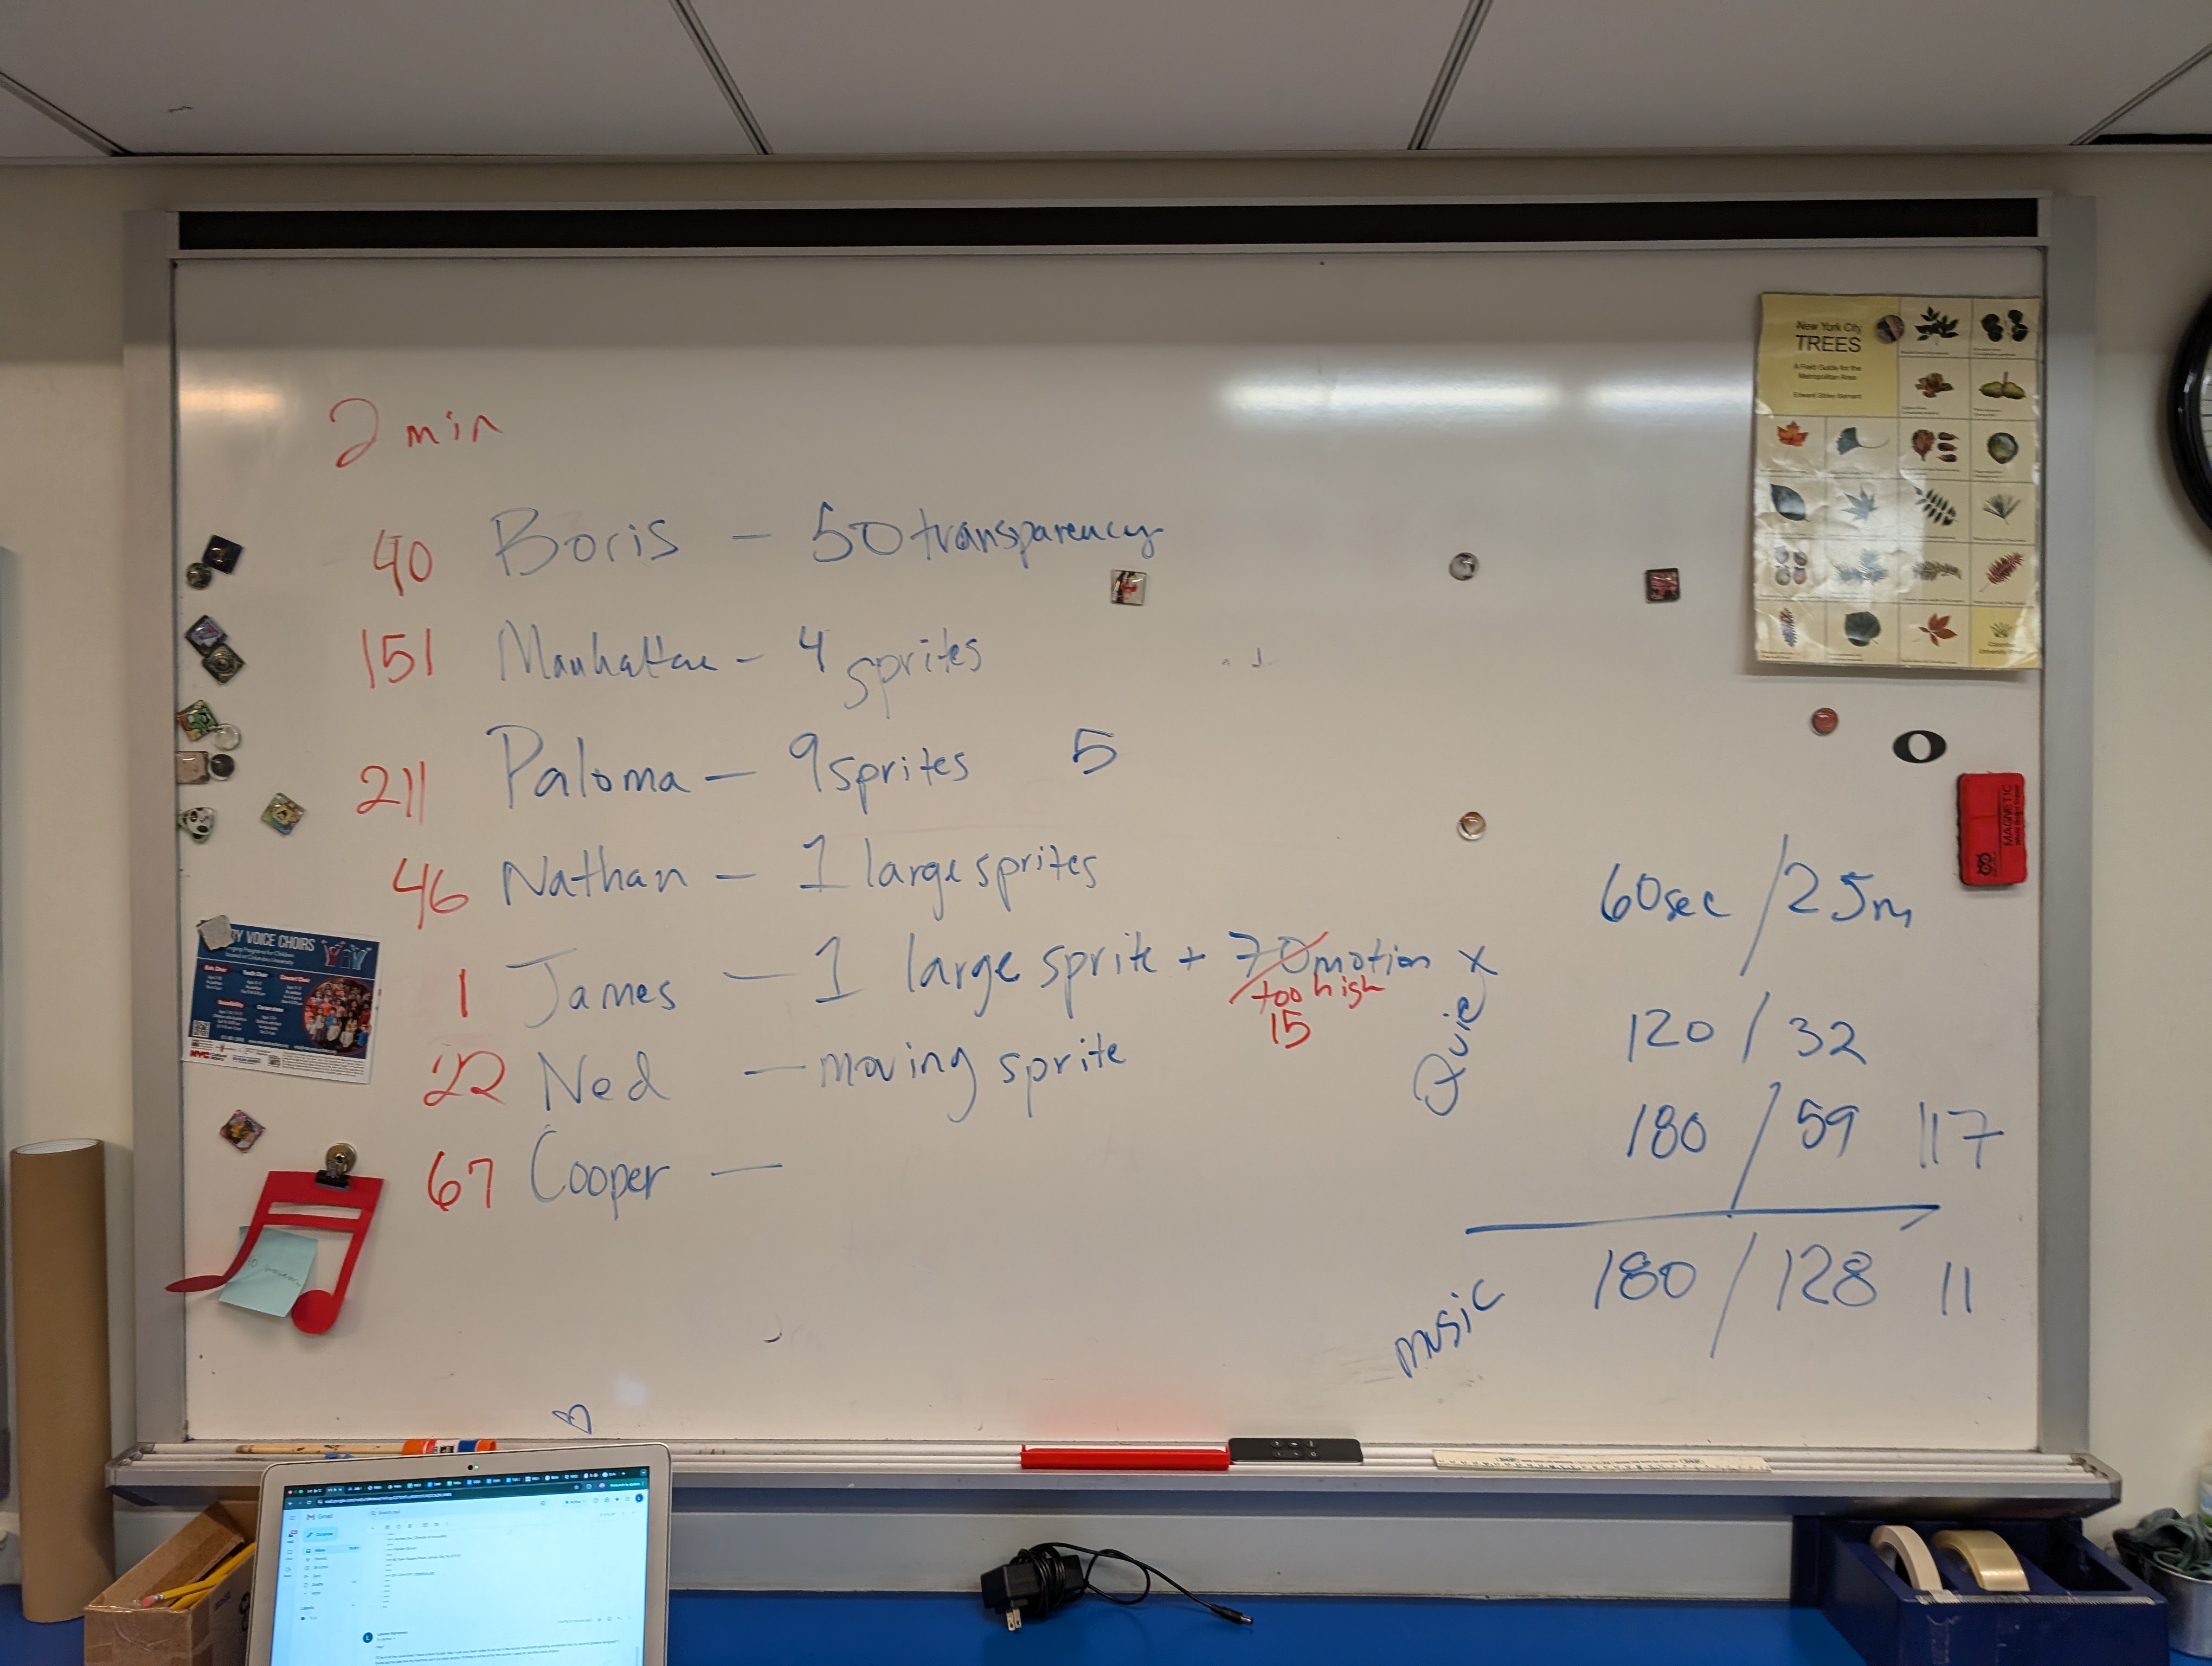 2 min
40 Boris — 50 transparency
151 Manhattan - 4 sprites
211 Paloma — 9 sprites 5
46 Nathan — 1 large sprites
1 James — 1 large sprite + 70 motion x
too high
15
22 Ned — moving sprite
67 Cooper —
60sec / 25m
120 / 32
180 / 59 117
music 180 / 128 11
New York City
TREES
A Field Guide for the
Metropolitan Area
Edward Sibley Barnard
MAGNETIC
VOICE CHOIRS
NYC
Gmail